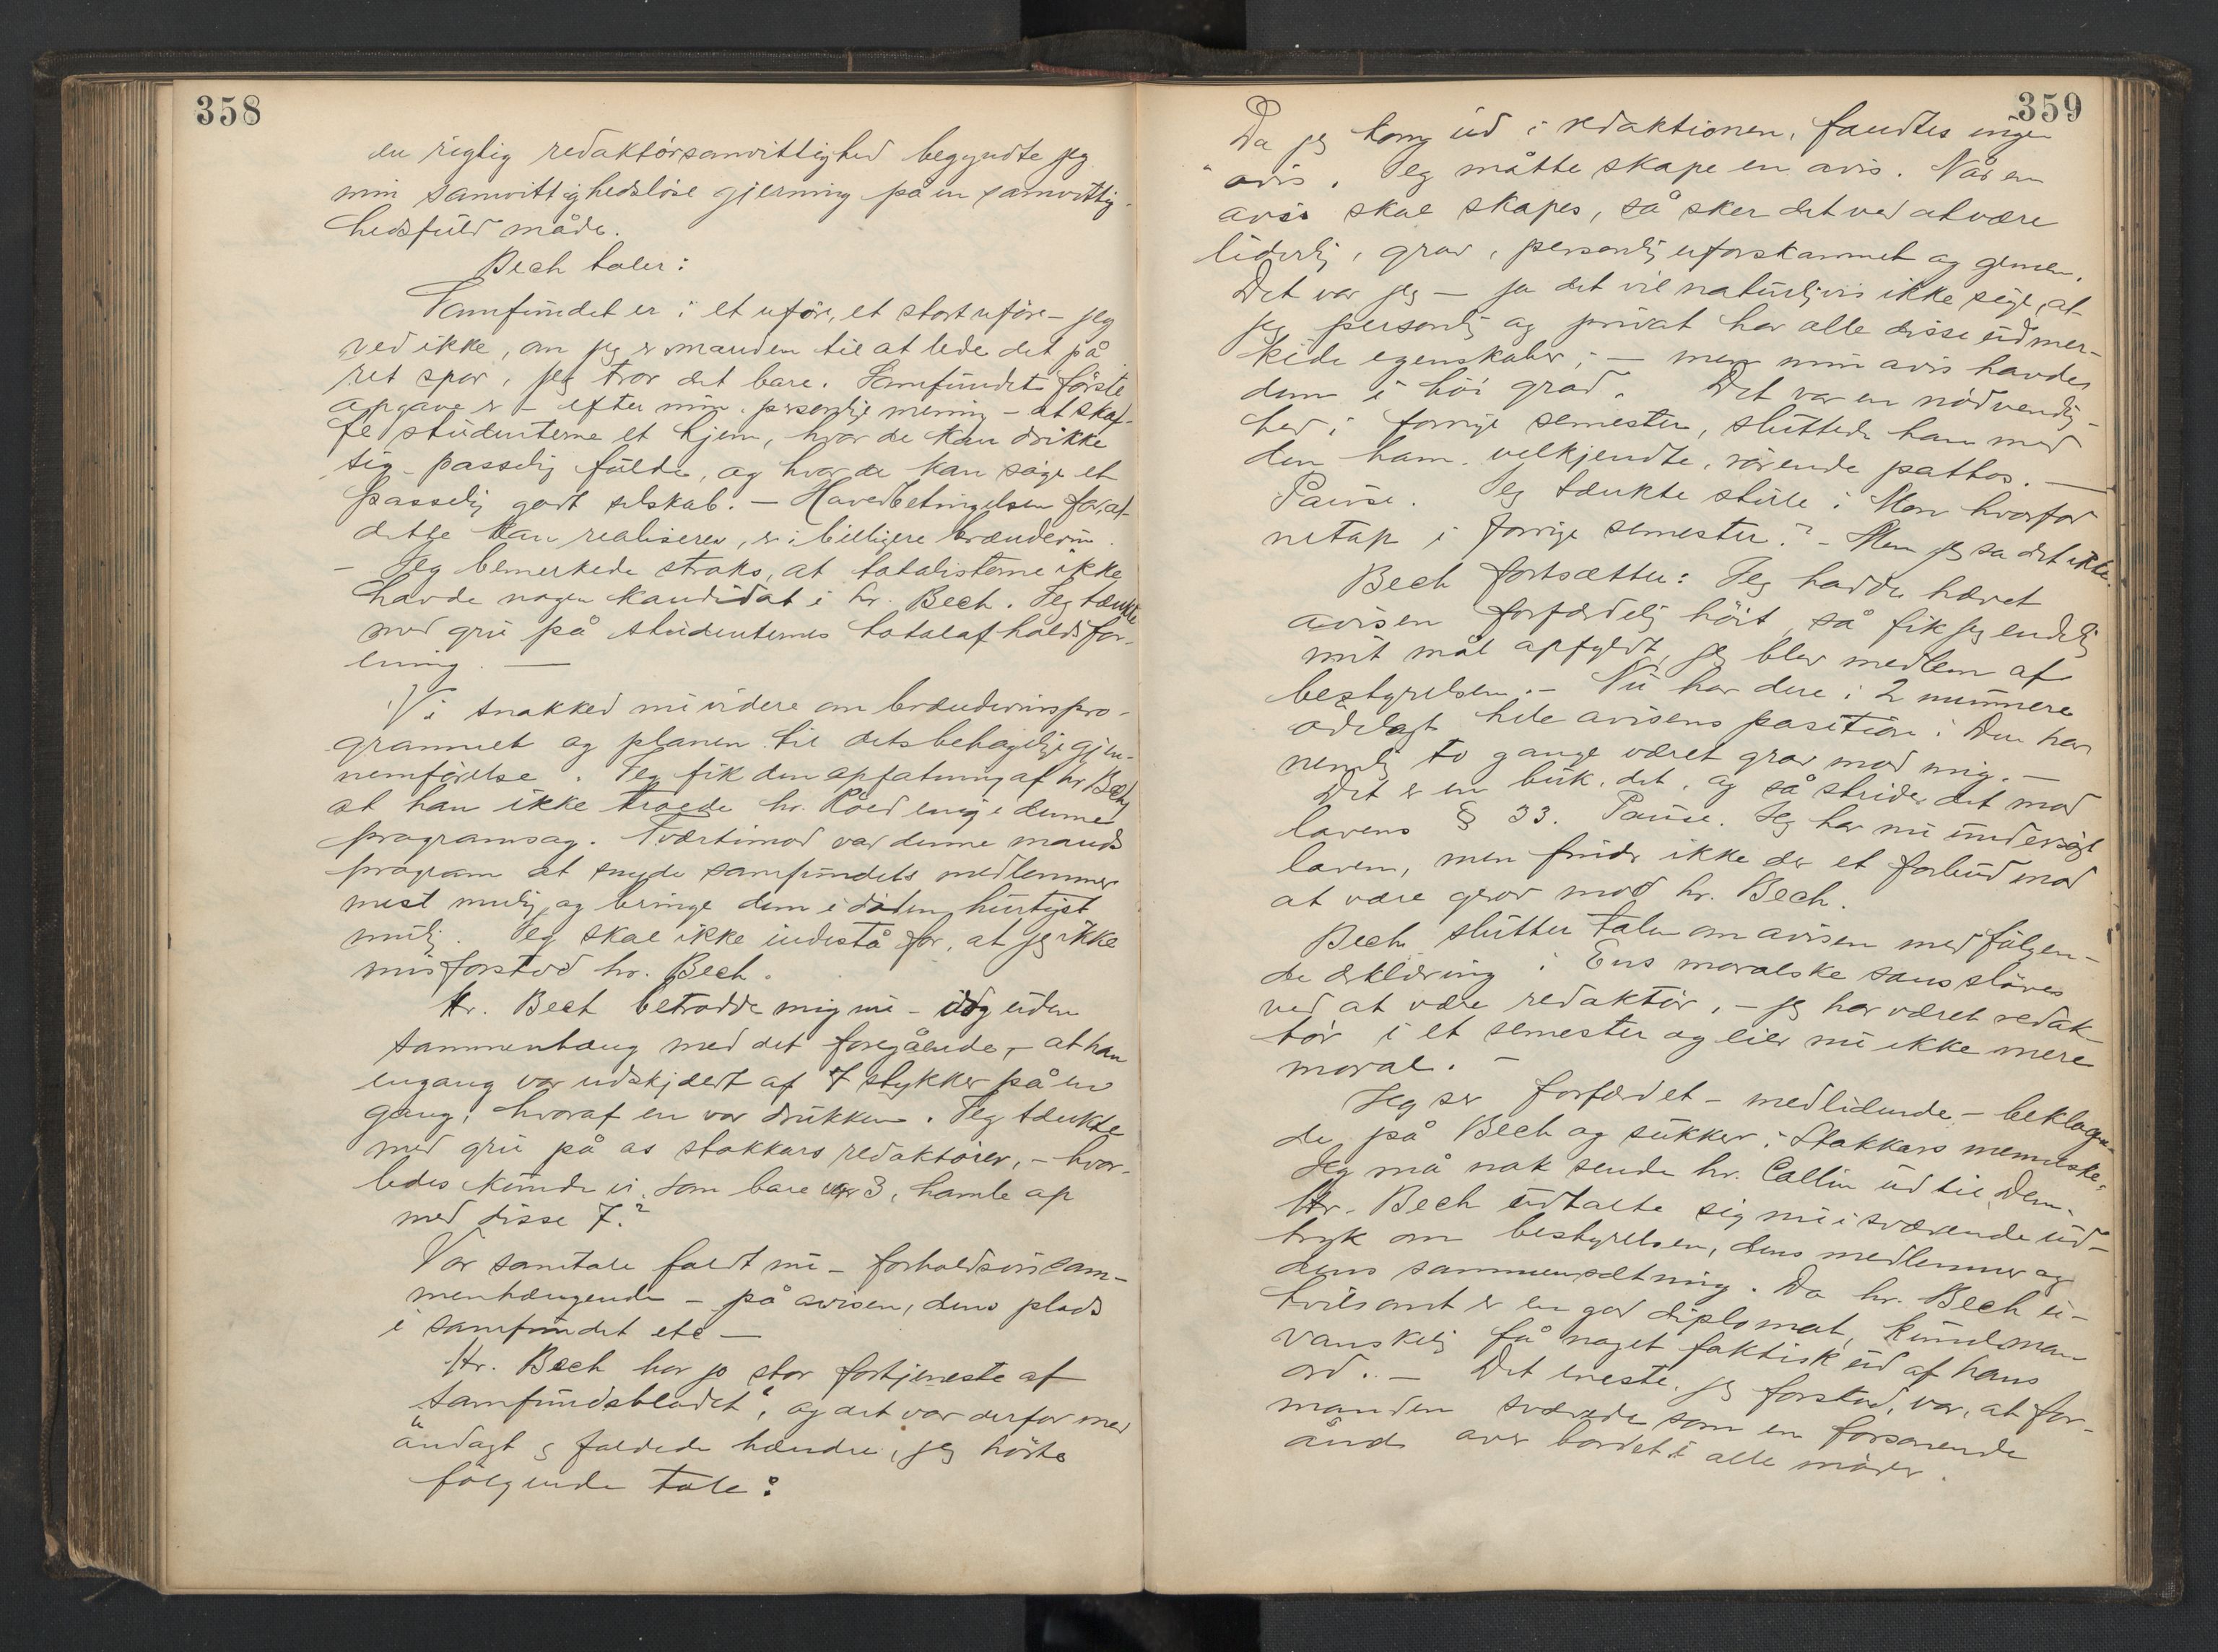 358
en rigtig redaktørsamvittighed begyndte jeg
min samvittighedsløse gjerning på en samvittig-
hedsfuld måde.
Bech taler:
Samfundet er i et uføre, et stort uføre – jeg
ved ikke, om jeg er manden til at lede det på
ret spor, jeg tror det bare. Samfundets første
opgave er – efter min personlige mening – at skaf-
fe studenterne et hjem, hvor de kan drikke
sig passelig fulde, og hvor de kan søge et
passelig godt selskab. – Hovedbetingelsen for, at
dette kan realiseres, er: billigere brændevin.
– Jeg bemerkede straks, at totalisterne ikke
havde nogen kandidat i hr. Bech. Jeg tænkte
med gru på studenternes totalafholdsfor-
ening. —
Vi snakked nu videre om brændevinspro-
grammet og planen til dets behagelige gjen-
nemførelse. Jeg fik den opfatning af hr Bech,
at han ikke troede hr. Roed enig i denne
programsag. Tværtimod var denne mands
program at snyde samfundets medlemmer
mest mulig og bringe dem i døden hurtigst
mulig. Jeg skal ikke indestå for, at jeg ikke
misforstod hr. Bech.
Hr. Bech betrodde mig nu – dog uden
sammenhæng med det foregående, – at han
engang var udskjældt af 7 stykker på en
gang, hvoraf en var drukken. Jeg tænkte
med gru på os stakkars redaktører, – hvor-
ledes kunde vi, som bare var 3, hamle op
med disse 7?
Vor samtale faldt nu – forholdsvis sam-
menhængende – på avisen, dens plads
i samfundet etc —
Hr. Bech har jo stor fortjeneste af
„Samfundsbladet“, og det var derfor med
andagt og foldede hænder, jeg hørte
følgende tale:
359
Da jeg kom ud i redaktionen, fandtes ingen
avis. Jeg måtte skape en avis. Når en
avis skal skapes, så sker det ved at være
liderlig, grov, personlig uforskammet og gemen.
Det var jeg – ja det vil naturligvis ikke sige, at
jeg personlig og privat har alle disse udmer-
kede egenskaber; – men min avis havde
dem i høi grad. Det var en nødvendig-
hed i forrige semester, sluttede han med
den ham velkjendte, rørende pathos. —
Pause. Jeg tænkte stille: Men hvorfor
netop i forrige semester? – Men jeg sa det ikke.
Bech fortsætter: Jeg hadde hævet
avisen forfærdelig høit, så fik jeg endelig
mit mål opfyldt, jeg blev medlem af
bestyrelsen. – Nu har dere i 2 nummere
ødelagt hele avisens position: Den har
nemlig to gange været grov mod mig. –
Det er en buk, det, og så strider det mod
lovens § 33. Pause. Jeg har nu undersøgt
loven, men finder ikke der et forbud mod
at være grov mod hr. Bech.
Bech slutter talen om avisen med følgen-
de erklæring: Ens moralske sans sløves
ved at være redaktør, – jeg har været redak-
tør i et semester og eier nu ikke mere
moral. –
Jeg ser forfærdet – medlidende – beklagen-
de på Bech og sukker: Stakkars menneske.
Jeg må nok sende hr. Collin ud til Dem.
Hr. Bech udtalte sig nu i svævende ud-
tryk om bestyrelsen, dens medlemmer og
dens sammensætning. Da hr. Bech u-
tvilsomt er en god diplomat, kunde man
vanskelig få noget faktisk ud af hans
ord. – Det eneste jeg forstod, var, at for-
manden svævede som en forsonende
ånd over bordet i alle møder.